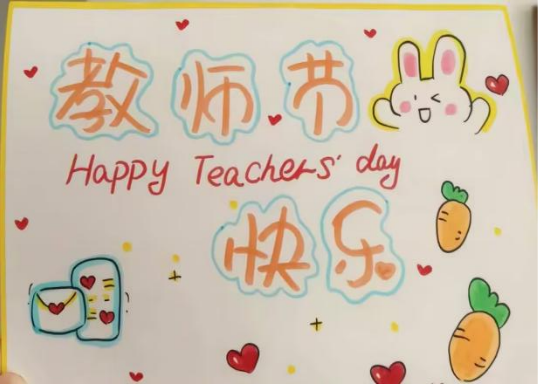 教师节
Happy Teachers' day
快乐